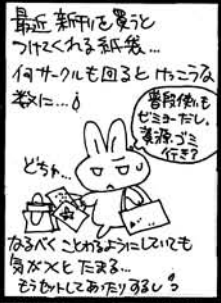 最近 新刊を買うと
つけてくれる紙袋…
何サークルも回ると けっこうな
数に…
普段使いも
ビミョーだし、
資源ゴミ
行き?
どちゃ…
なるべく ことわるようにしていても
気がつくと たまる…
もうセットしてあったりするし